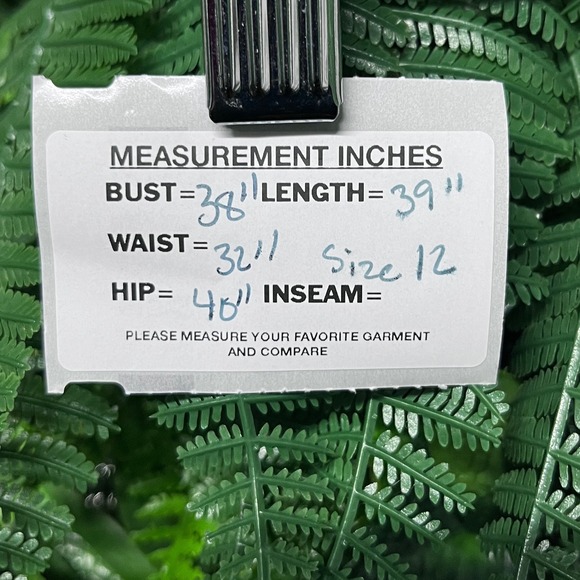 MEASUREMENT INCHES
BUST=38" LENGTH=39"
WAIST=32" Size 12
HIP=40" INSEAM=
PLEASE MEASURE YOUR FAVORITE GARMENT
AND COMPARE